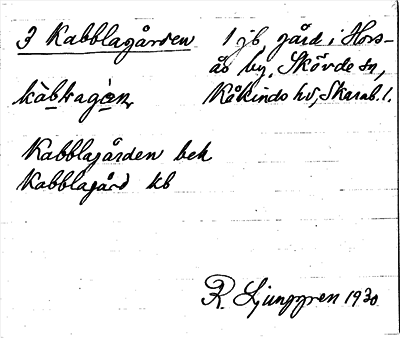 3 Kabblagården
1 jb, gård i Hors-
ås by, Skövde sn,
Kåkinds hd, Skarab. l.
Kabblagården bek
Kabblagård kb
R. Ljunggren 1930